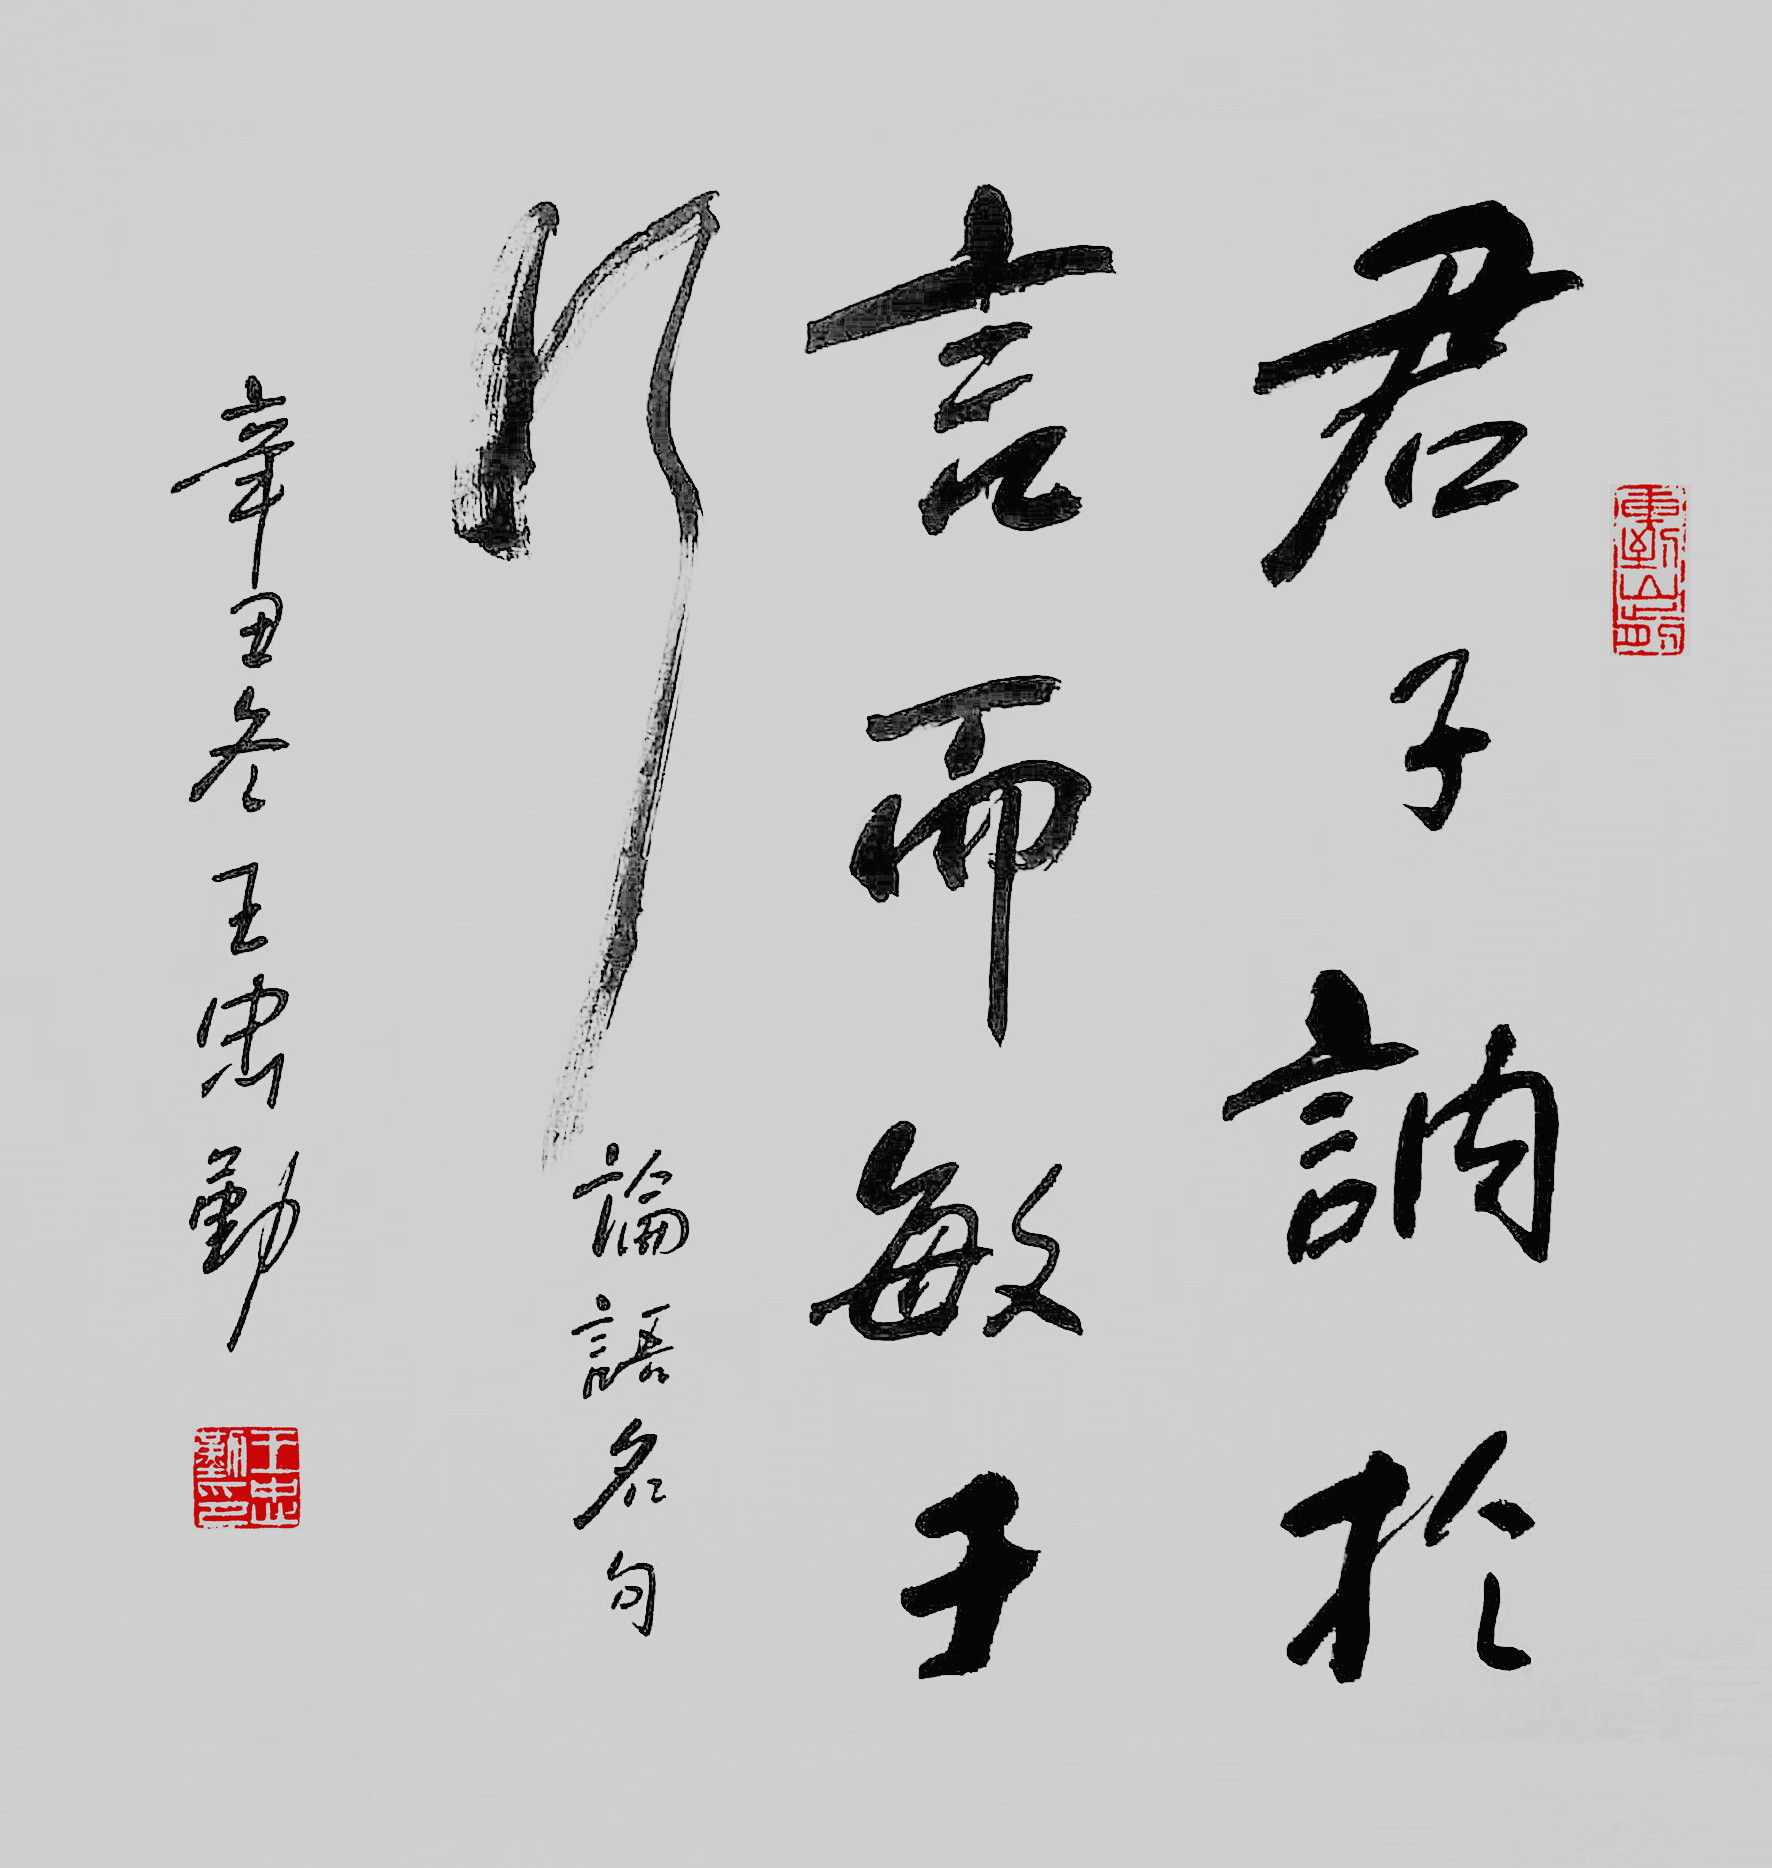 君子訥於
言而敏于
行
論語名句
辛丑冬王忠勤
王忠勤印